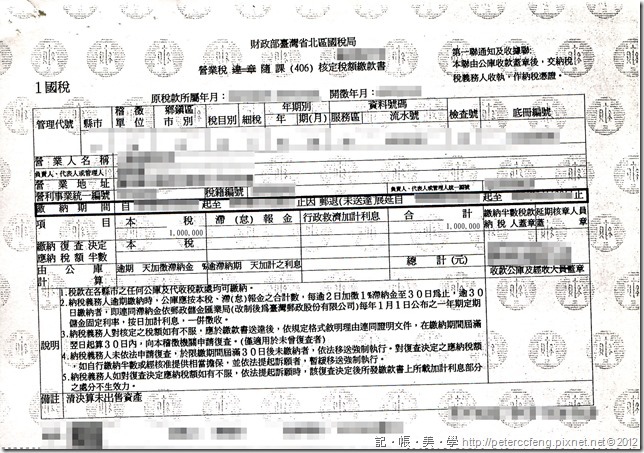 財政部臺灣省北區國稅局
營業稅 違-章 隨 課 (406) 核定稅額繳款書
第一聯通知及收據聯:
本聯由公庫收款蓋章後,交納稅
稅義務人收執,作納稅憑證。
1國稅
原稅款所屬年月:
開徵年月:
管理代號
縣市
稽徵
單位
鄉鎮區
市別
稅目別
細稅
年期別
年
期(月)
資料號碼
服務區
流水號
檢查號
底冊編號
營業人名稱
負責人、代表人或管理人
營業地址
營利事業統一編號
稅籍編號
負責人、代表人或管理人統一編號
繳納期間
自
起至
止因 郵退(未送達)展延自
起至
止
項目
本稅
滯(怠)報金
行政救濟加計利息
合計
繳納半數稅款
納稅人蓋章
延期核章人員
蓋章
1,000,000
1,000,000
繳納復查決定
應納稅額半數
本稅
由公庫
計算
逾期 天加徵滯納金 %
逾滯納期 天加計之利息
總計(元)
收款公庫及經收人員蓋章
說明
1.稅款在各縣市之任何公庫及代收稅款處均可繳納。
2.納稅義務人逾期繳納時,公庫應按本稅、滯(怠)報金之合計數,每逾2日加徵1%滯納金至30日為止,逾30
日繳納者,即連同滯納金依郵政儲金匯業局(改制後為臺灣郵政股份有限公司)每年1月1日公布之一年期定期
儲金固定利率,按日加計利息,一併徵收。
3.納稅義務人對核定之稅額如有不服,應於繳款書送達後,依規定格式敘明理由連同證明文件,在繳納期間屆滿
翌日起算30日內,向本稽徵機關申請復查。(僅適用於未曾復查者)
4.納稅義務人未依法申請復查,於限繳期間屆滿30日後未繳納者,依法移送強制執行。對復查決定之應納稅額
,如自行繳納半數或經核准提供相當擔保,並依法提起訴願者,暫緩移送強制執行。
5.納稅義務人如對復查決定應納稅額如有不服,依法提起訴願時,該復查決定後所發繳款書上所載加計利息部分
之處分不生效力。
備註
清決算未出售資產
記‧帳‧美‧學 http://peterccfeng.pixnet.net © 2012